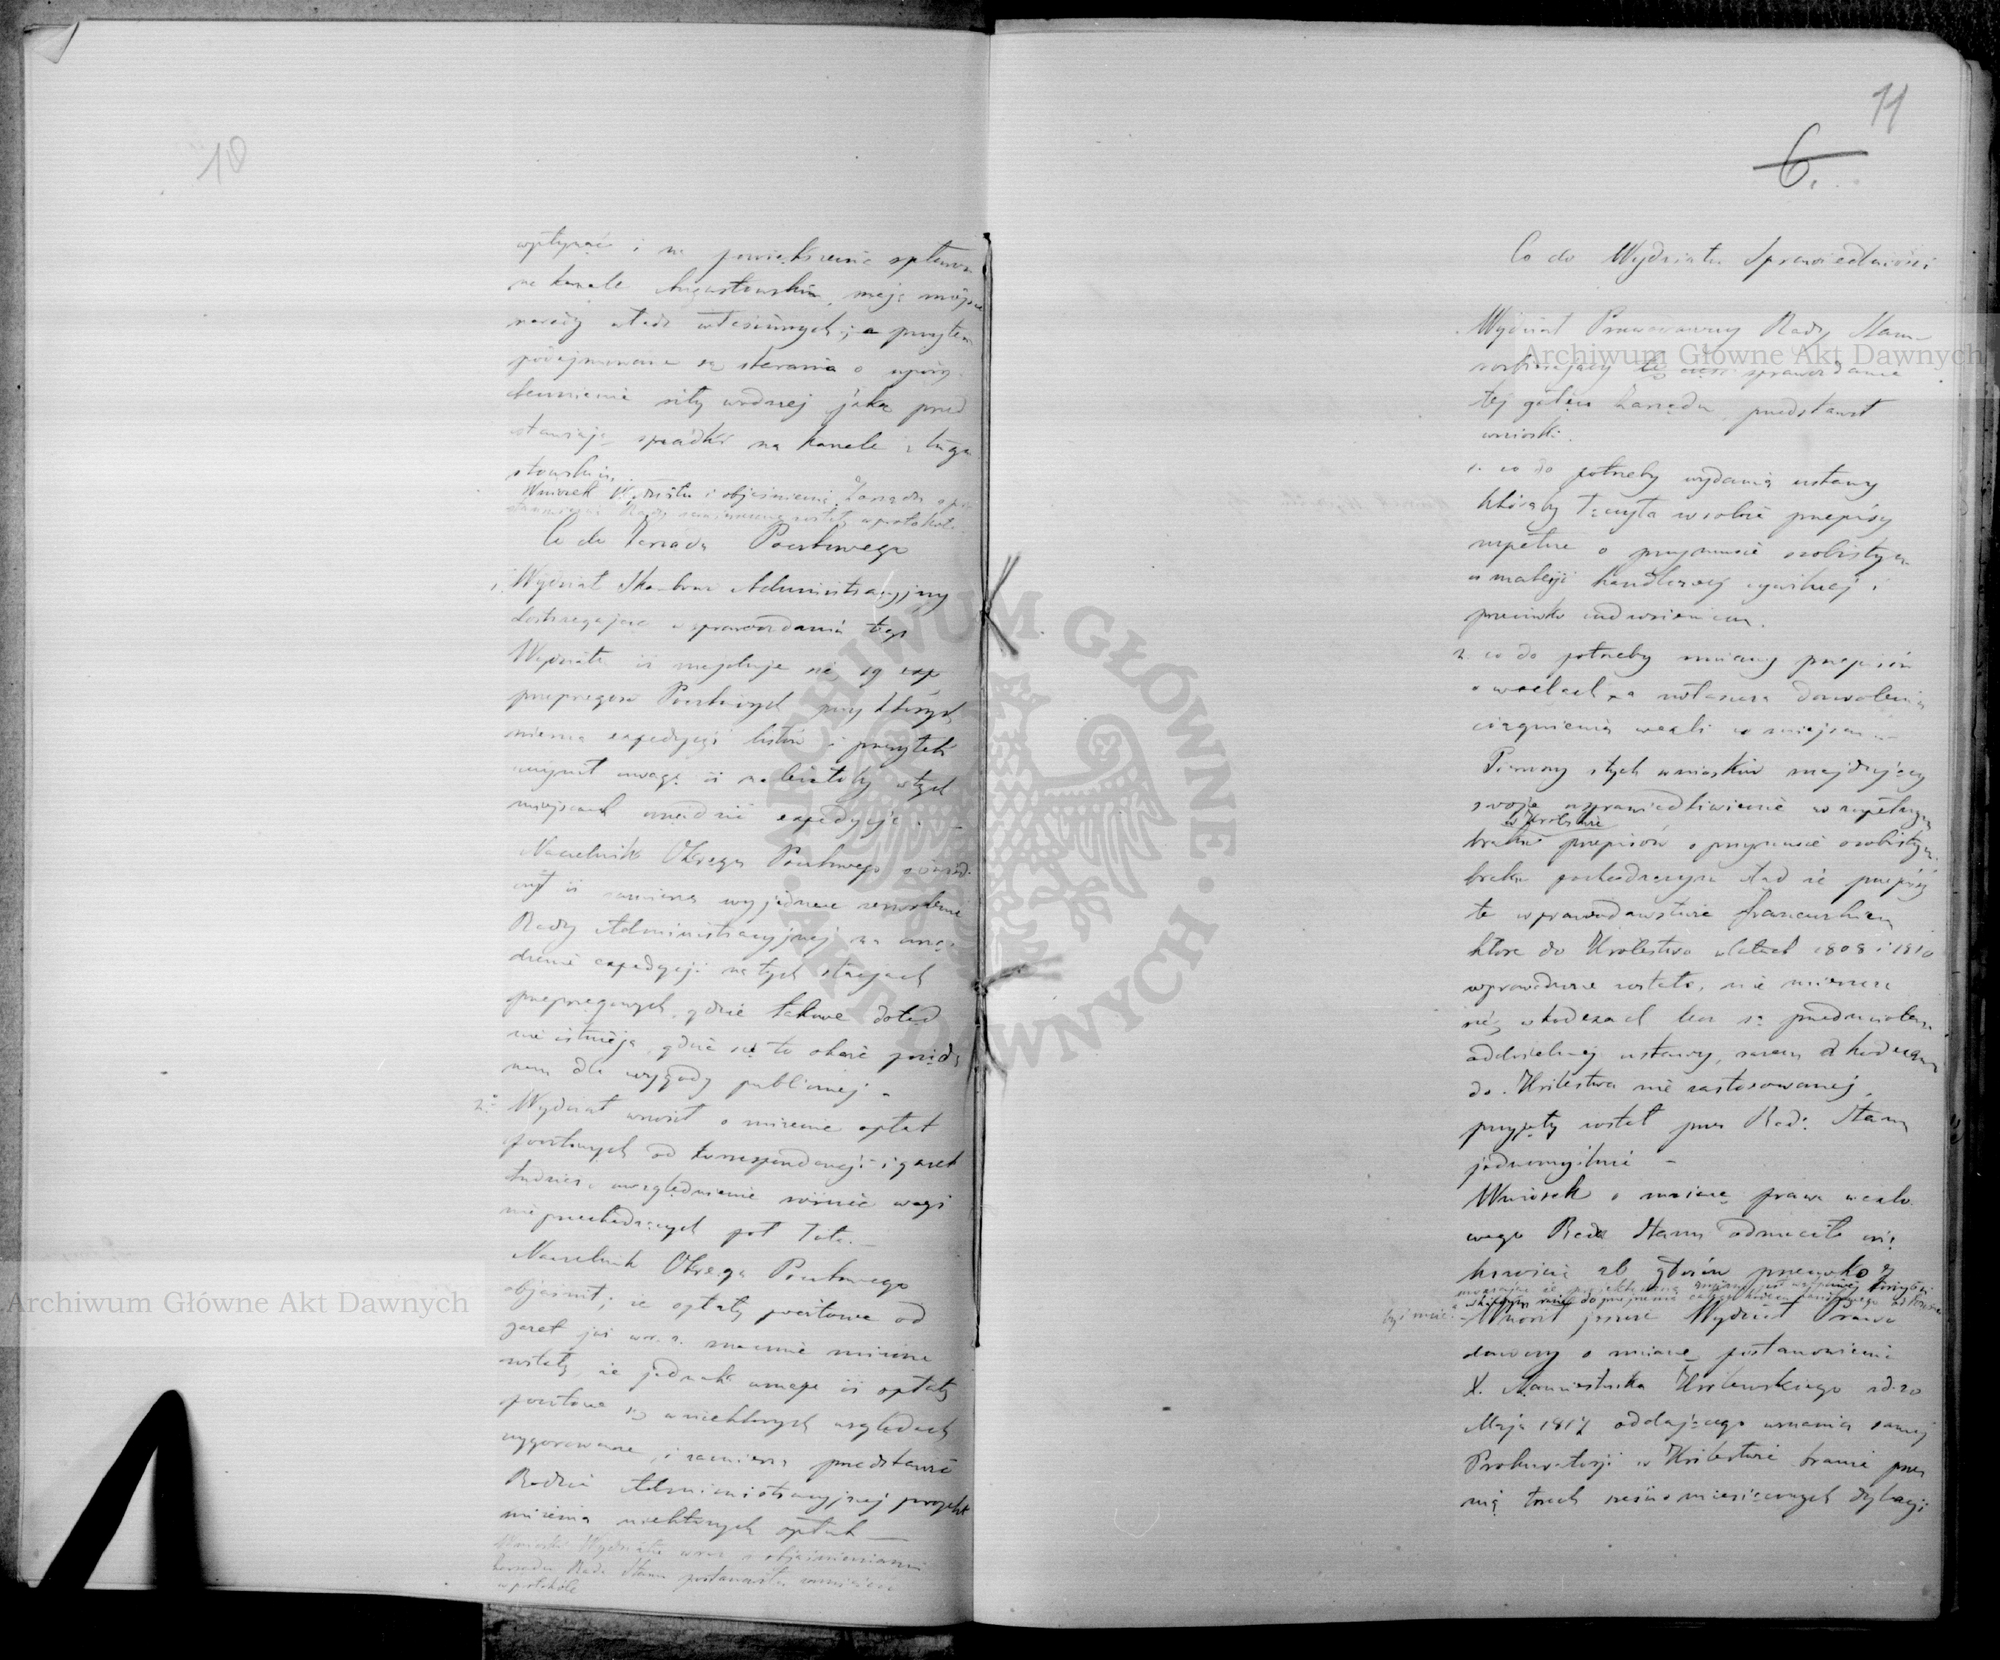 10
wpłynąć i na powiększenie spławu
na kanale Augustowskim, mają miejsce
narady władz właściwych; a przytem
podejmowane są starania o
siły wodnej jaką przed
stawiają spadki na kanale Augu
stowskim.
Wniosek Wydziału i objaśnienia Zarządu
Rady zamieszczone zostały w protokóle
Co do Zarządu Pocztowego
1. Wydział Skarbowo Administracyjny
dostrzegając w sprawozdaniu tego
Wydziału iż znajduje się 19
przeprzęgów Pocztowych przy których
niema expedycyi listów i przesyłek
uczynił uwagę iż należałoby w tych
miejscach urządzić expedycje. —
Naczelnik Okręgu Pocztowego oświad
czył iż zamierza wyjednać zezwolenie
Rady Administracyjnej na urzą
dzenie expedycyi na tych stacjach
przeprzęgowych, gdzie takowe dotąd
nie istnieją, gdzie się to okaże pożąda
nem dla wygody publicznej. —
2. Wydział wnosił o zniżenie opłat
pocztowych od korrespondencyi i gazet
tudzież uwzględnienie różnic wagi
nieprzechodzących pół łuta. —
Naczelnik Okręgu Pocztowego
objaśnił, że opłaty pocztowe od
gazet już w r. z. znacznie zniżone
zostały, że jednak uznaje iż opłaty
pocztowe są w niektórych względach
wygórowane, i zamierza przedstawić
Radzie Administracyjnej projekt
zniżenia niektórych opłat —
Wnioski Wydziału wraz z objaśnieniami
Zarządu Rada Stanu postanowiła zamieścić
w protokóle
11
6.
Co do Wydziału Sprawiedliwości
Wydział Prawodawczy Rady Stanu
rozbierający tę część sprawozdania
tej gałęzi Zarządu, przedstawił
wnioski.
1. co do potrzeby wydania ustawy
któraby łączyła w sobie przepisy
zupełne o przymusie osobistym
w materyi handlowej cywilnej i
przeciwko cudzoziemcom.
2. co do potrzeby zmiany przepisów
o wexlach, a zwłaszcza dozwolenia
ciągnienia wexli w miejscu —
Pierwszy z tych wniosków znajdujący
swoje usprawiedliwienie w zupełnym
w Królestwie
braku przepisów o przymusie osobistym
braku pochodzącym ztąd że przepisy
te w prawodawstwie francuzkiem
które do Królestwa w latach 1808 i 1810
wprowadzone zostało, nie mieszczą
się w kodexach lecz są przedmiotem
oddzielnej ustawy, razem z kodexami
do Królestwa nie zastosowanej,
przyjęty został przez Radę Stanu
jednomyślnie —
Wniosek o zmianę prawa wexlo
wego Rada Stanu odrzuciła wię
kszością głosów przeciwko
Wnosił jeszcze Wydział Prawo
dawczy o zmianę postanowienia
X. Namiestnika Królewskiego z d. 20
Maja 1817 oddającego uznaniu samej
Prokuratoryi w Królestwie branie przez
nią trzech sześcio miesięcznych dylacyi
Archiwum Główne Akt Dawnych
Archiwum Główne Akt Dawnych
ARCHIWUM GŁÓWNE AKT DAWNYCH